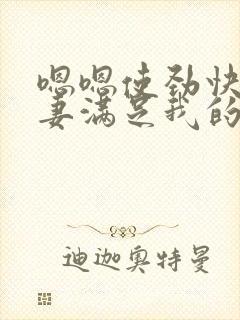 嗯嗯使劲快
妻满足我的
迪迦奥特曼